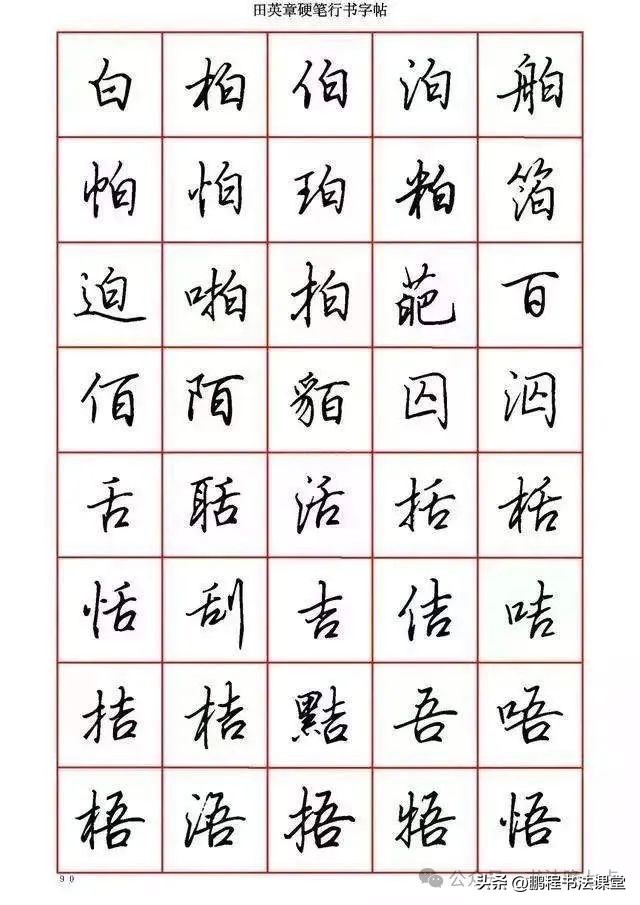 田英章硬笔行书字帖
白 柏 伯 泊 舶
帕 怕 珀 粕 箔
迫 啪 拍 葩 百
佰 陌 貊 囚 泅
舌 聒 活 括 栝
恬 刮 吉 佶 咭
拮 桔 黠 吾 唔
梧 浯 捂 牾 悟
90
头条 @鹏程书法课堂